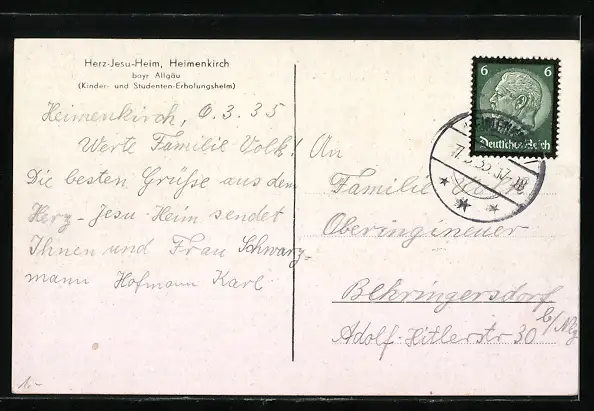 Herz-Jesu-Heim, Heimenkirch
bayr Allgäu
(Kinder- und Studenten-Erholungsheim)
Heimenkirch, 6.3.35
Werte Familie Volk!
Die besten Grüße aus dem
Herz-Jesu-Heim sendet
Ihnen und Frau Schwarz=
mann Hofmann Karl
1.-
6 6
Deutsches Reich
7.3.35.17-18
An
Familie Volk
Oberingineuer
Behringersdorf
b/Nbg
Adolf-Hitlerstr 30